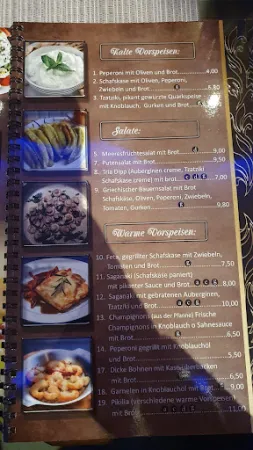 Kalte Vorspeisen:
1. Peperoni mit Oliven und Brot 4,00
2. Schafskäse mit Oliven, Peperoni,
Zwiebeln und Brot 5,80
3. Tzatziki, pikant gewürzte Quarkspeise
mit Knoblauch, Gurken und Brot
Salate:
5. Meeresfrüchtesalat mit Brot 9,80
7. Putensalat mit Brot 9,50
8. Dip (Auberginen creme, Tzatziki
Schafskäse creme) mit Brot 8,50
9. Griechischer Bauernsalat mit Brot
Schafskäse, Oliven, Peperoni, Zwiebeln,
Tomaten, Gurken 9,80
Warme Vorspeisen:
10. Feta, gegrillter Schafskäse mit Zwiebeln,
Tomaten und Brot 7,50
11. Saganaki (Schafskäse paniert)
mit pikanter Sauce und Brot 8,00
12. Saganaki mit gebratenen Auberginen,
Tzatziki und Brot 10,00
13. Champignons (aus der Pfanne) Frische
Champignons in Knoblauch o Sahnesauce
mit Brot 6,50
14. Peperoni gegrillt mit Knoblauchöl
und Brot 5,50
17. Dicke Bohnen mit
mit Brot
18. Garnelen in Knoblauchöl mit 9,00
19. Pikilia (verschiedene warme Vorspeisen)
mit Brot 11,00